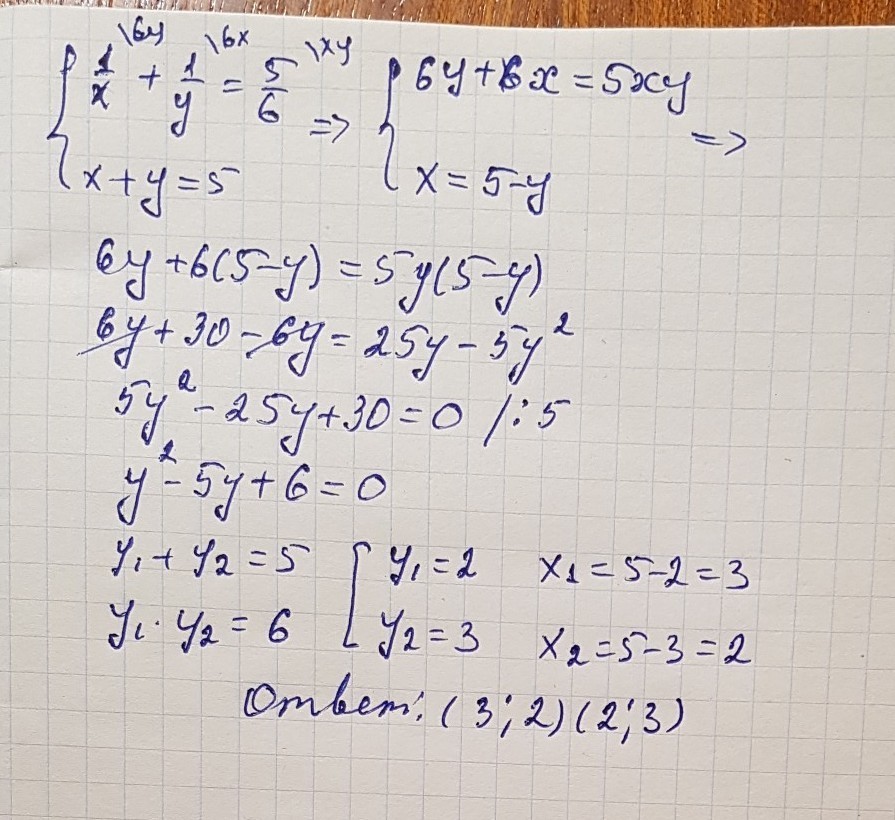 { 1/x \6y + 1/y \6x = 5/6 \xy => { 6y + 6x = 5xy =>
x + y = 5 x = 5-y
6y + 6(5-y) = 5y(5-y)
6y + 30 - 6y = 25y - 5y²
5y² - 25y + 30 = 0 /: 5
y² - 5y + 6 = 0
y₁ + y₂ = 5 [ y₁ = 2 x₁ = 5-2 = 3
y₁ · y₂ = 6 y₂ = 3 x₂ = 5-3 = 2
Ответ: (3; 2) (2; 3)